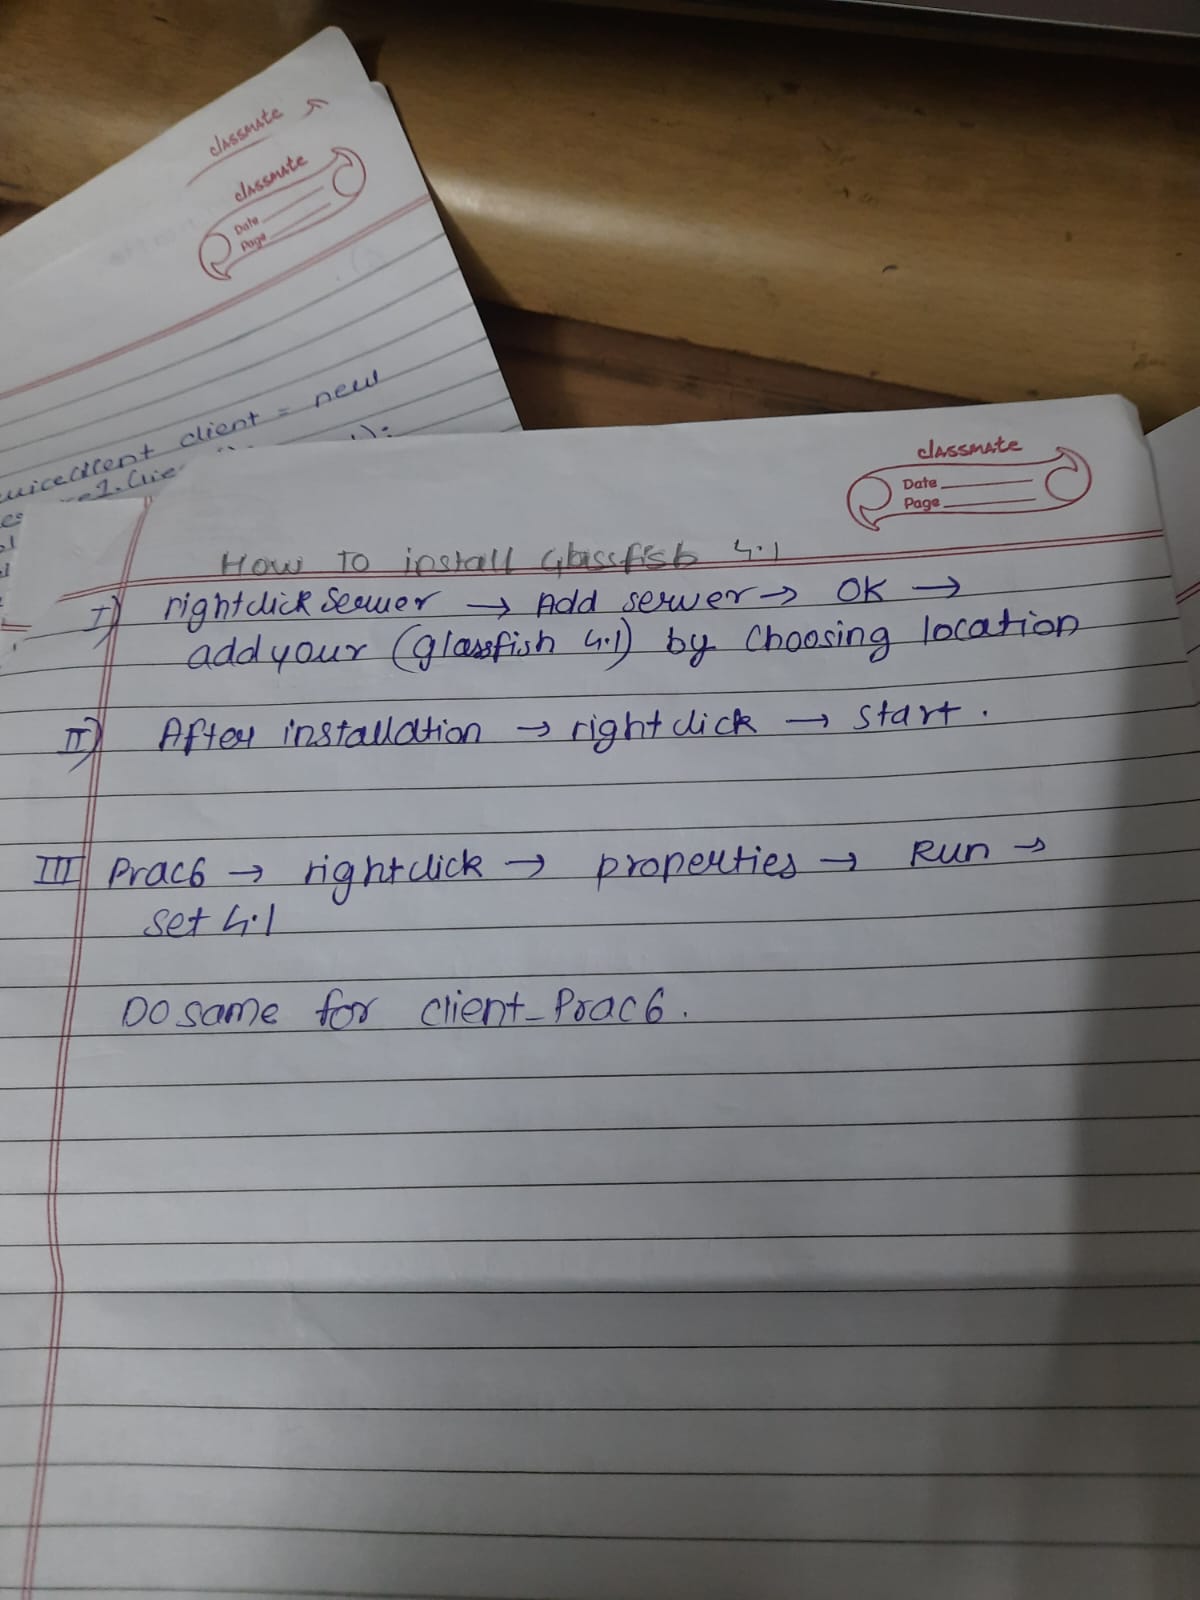 classmate
classmate
Date
Page
client = new
classmate
Date
Page
How To install Glassfish 4.1
I) rightclick Server → Add server → OK →
add your (glassfish 4.1) by Choosing location
II) After installation → right click → start.
III Prac6 → right click → properties → Run →
set 4.1
Do same for client_Prac6.